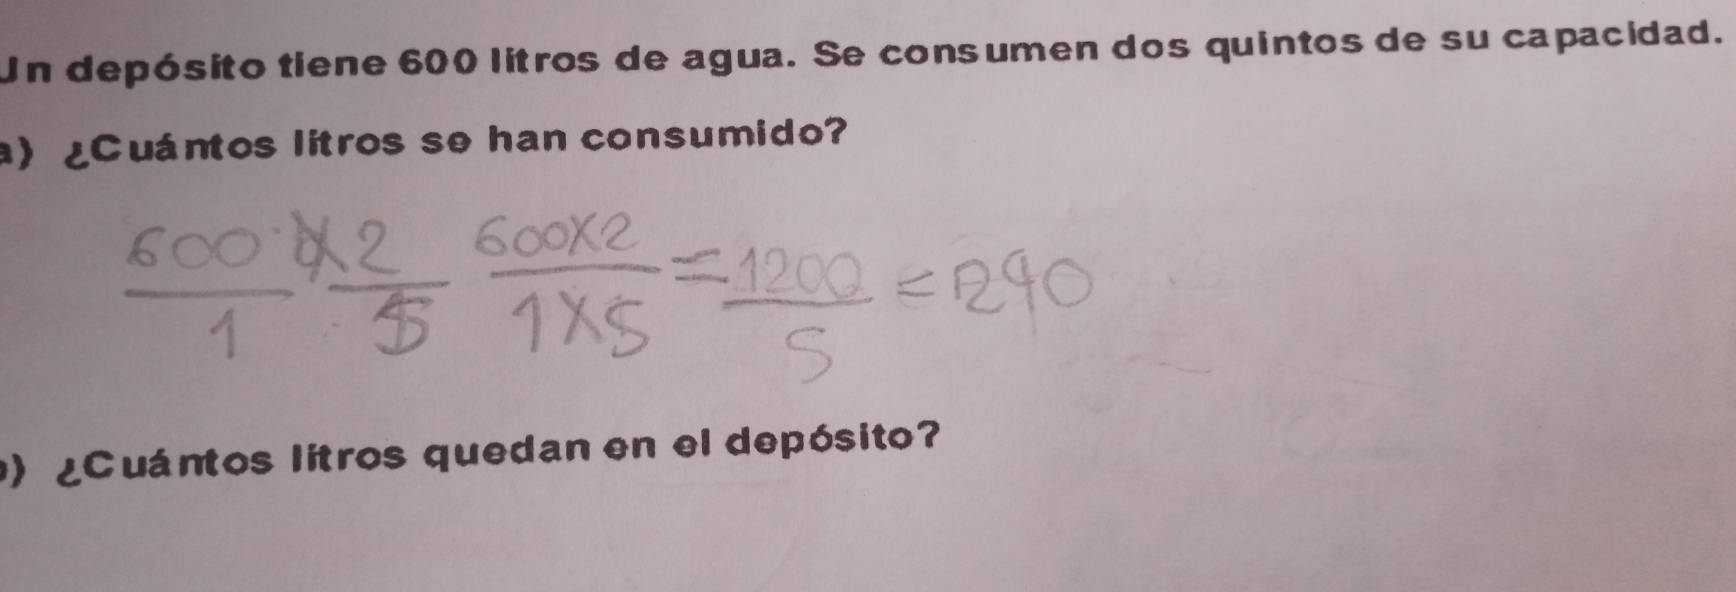 Un depósito tiene 600 litros de agua. Se consumen dos quintos de su capacidad.
a) ¿Cuántos litros se han consumido?
600/1 x 2/5 600x2/1x5 = 1200/5 = 240
b) ¿Cuántos litros quedan en el depósito?